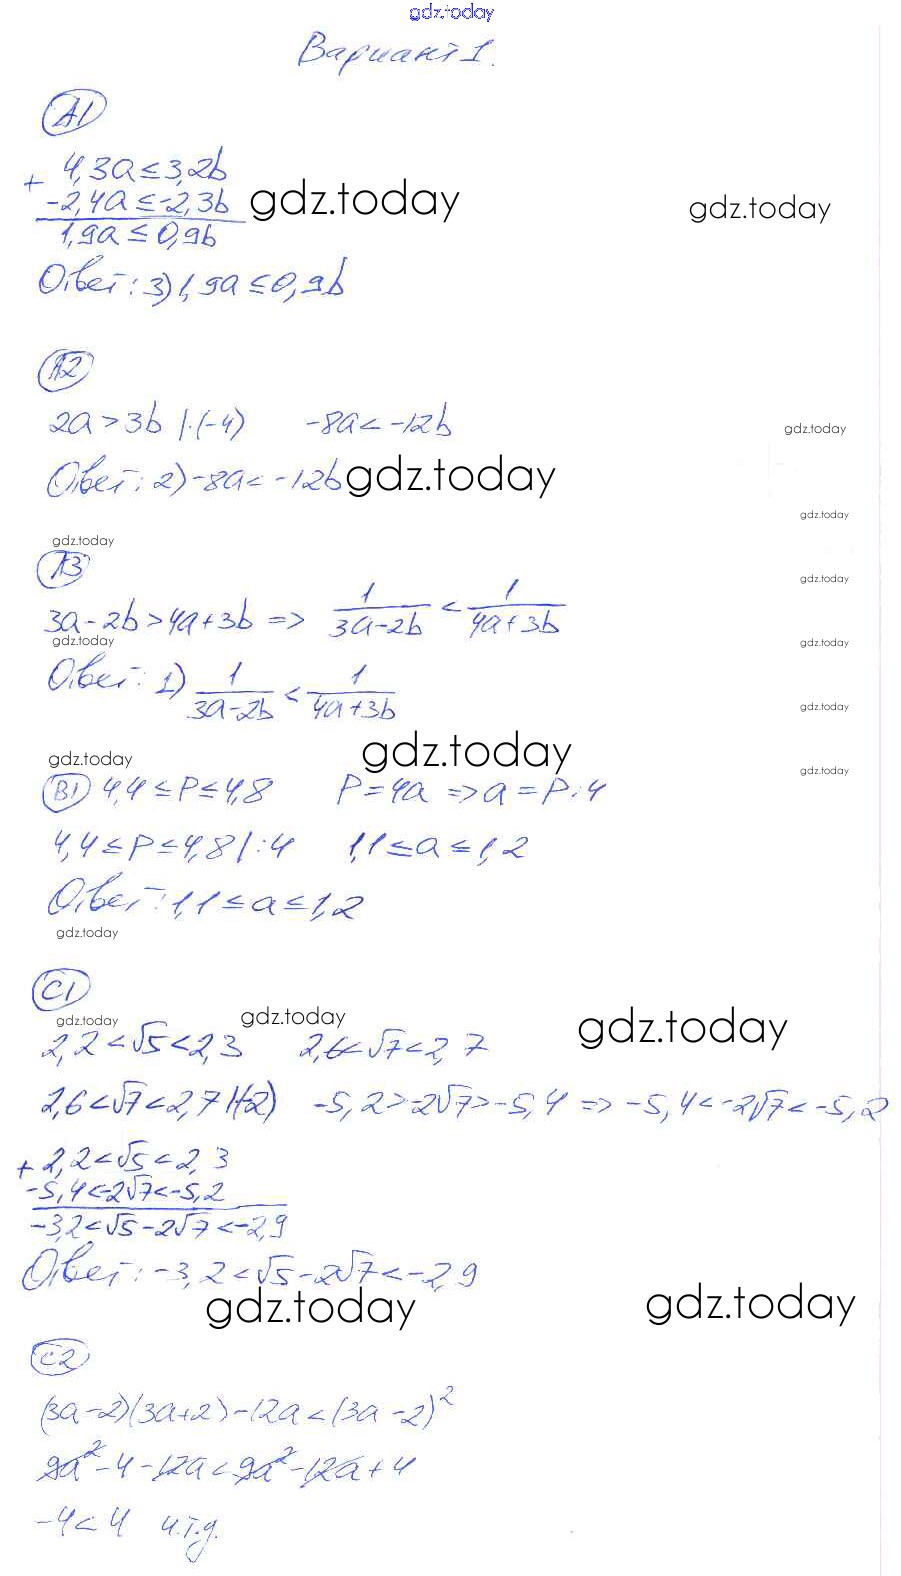 gdz.today
Вариант 1.
А1
+ 4,3a ≤ 3,2b
-2,4a ≤ -2,3b
gdz.today gdz.today
1,9a ≤ 0,9b
Ответ: 3) 1,9a ≤ 0,9b
А2
2a > 3b |·(-4) -8a < -12b
gdz.today
Ответ: 2) -8a < -12b gdz.today
gdz.today
gdz.today
А3
gdz.today
3a-2b > 4a+3b => 1/(3a-2b) < 1/(4a+3b)
gdz.today gdz.today
Ответ: 1) 1/(3a-2b) < 1/(4a+3b)
gdz.today
gdz.today gdz.today
gdz.today
В1 4,4 ≤ P ≤ 4,8 P = 4a => a = P:4
4,4 ≤ P ≤ 4,8 |:4 1,1 ≤ a ≤ 1,2
Ответ: 1,1 ≤ a ≤ 1,2
gdz.today
С1
gdz.today gdz.today gdz.today
2,2 < √5 < 2,3 2,6 < √7 < 2,7
2,6 < √7 < 2,7 |(-2) -5,2 > -2√7 > -5,4 => -5,4 < -2√7 < -5,2
+ 2,2 < √5 < 2,3
-5,4 < -2√7 < -5,2
-3,2 < √5-2√7 < -2,9
Ответ: -3,2 < √5-2√7 < -2,9
gdz.today gdz.today
С2
(3a-2)(3a+2)-12a < (3a-2)²
9a²-4-12a < 9a²-12a+4
-4 < 4 ч.т.д.